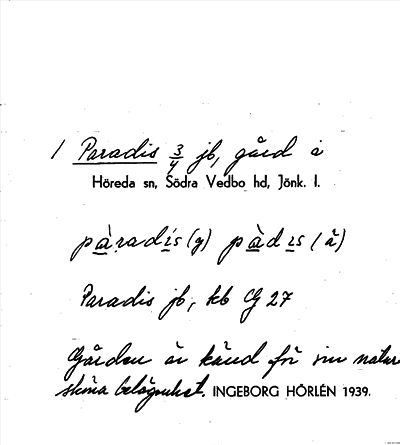 1 Paradis 3/4 jb, gård i
Höreda sn, Södra Vedbo hd, Jönk. l.
pàradis (y) pàdis (ä)
Paradis jb, kb CG 27
Gården är känd för sin natur
sköna belägenhet. INGEBORG HÖRLÉN 1939.